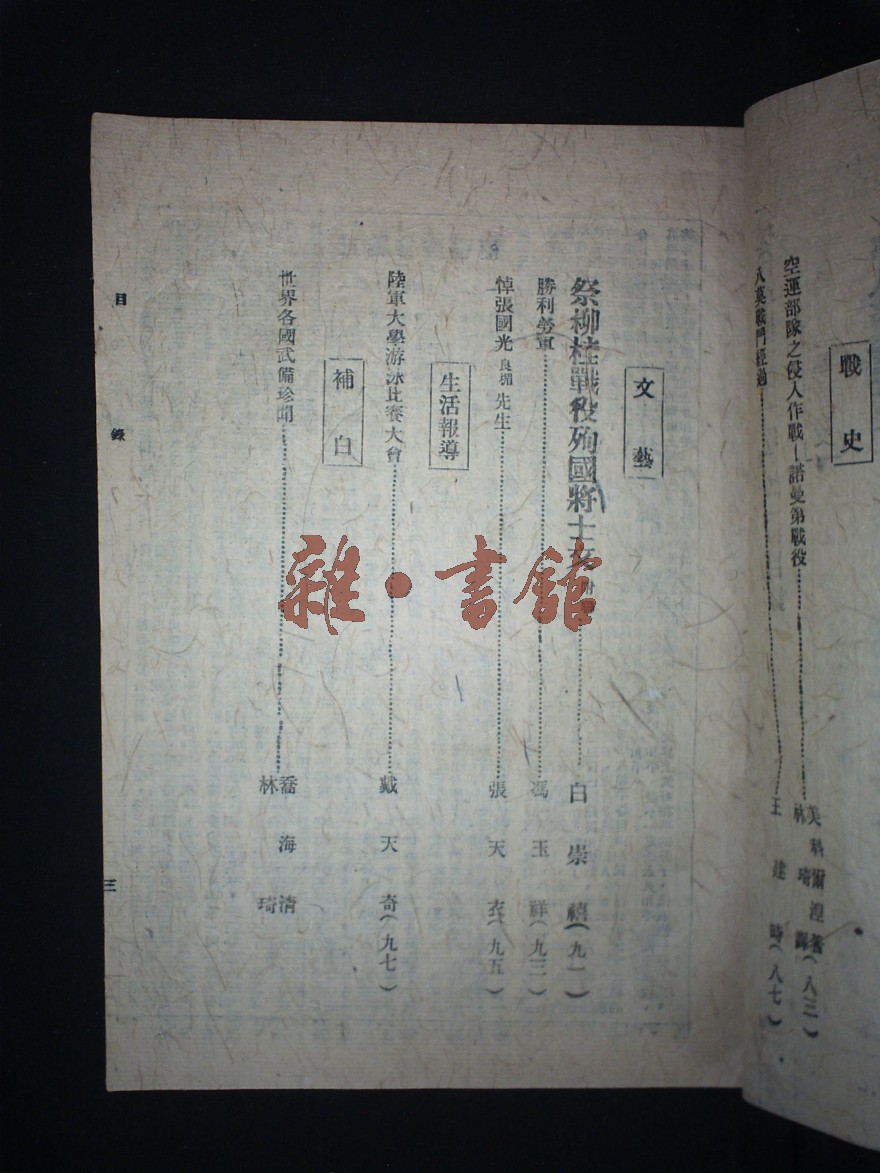 戰史
空運部隊之侵入作戰—諾曼第戰役
美科爾 著
林琦譯（八三）
戰鬥經過
王達時（八七）
文藝
祭柳桂戰役殉國將士文
白崇禧（九一）
勝利勞軍
馮玉祥（九三）
悼張國光 先生
張天衣（九五）
生活報導
陸軍大學游泳比賽大會
戴天奇（九七）
補白
世界各國武備珍聞
喬海清
林琦
目錄
三
雜·書館